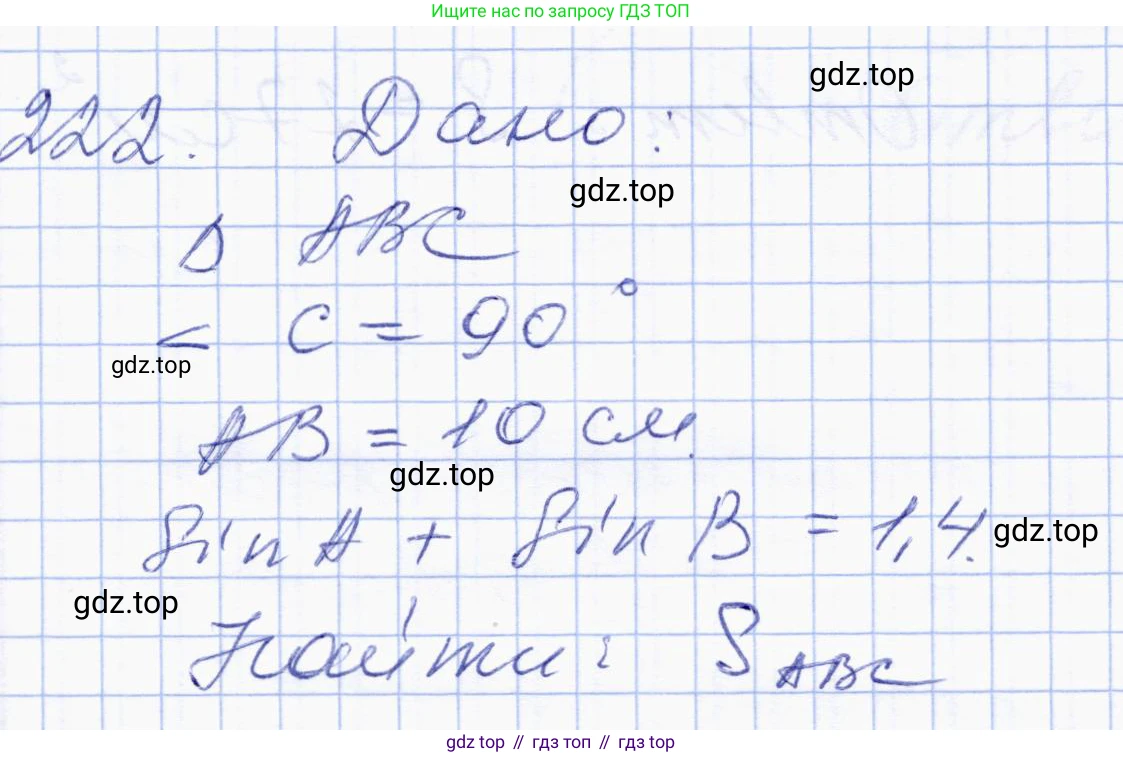 Ищите нас по запросу ГДЗ ТОП
gdz.top
222. Дано:
gdz.top
Δ ABC
< C = 90°
gdz.top
AB = 10 см.
gdz.top
Sin A + Sin B = 1,4.
gdz.top
gdz.top
Найти: S ABC
gdz top // гдз топ // гдз top